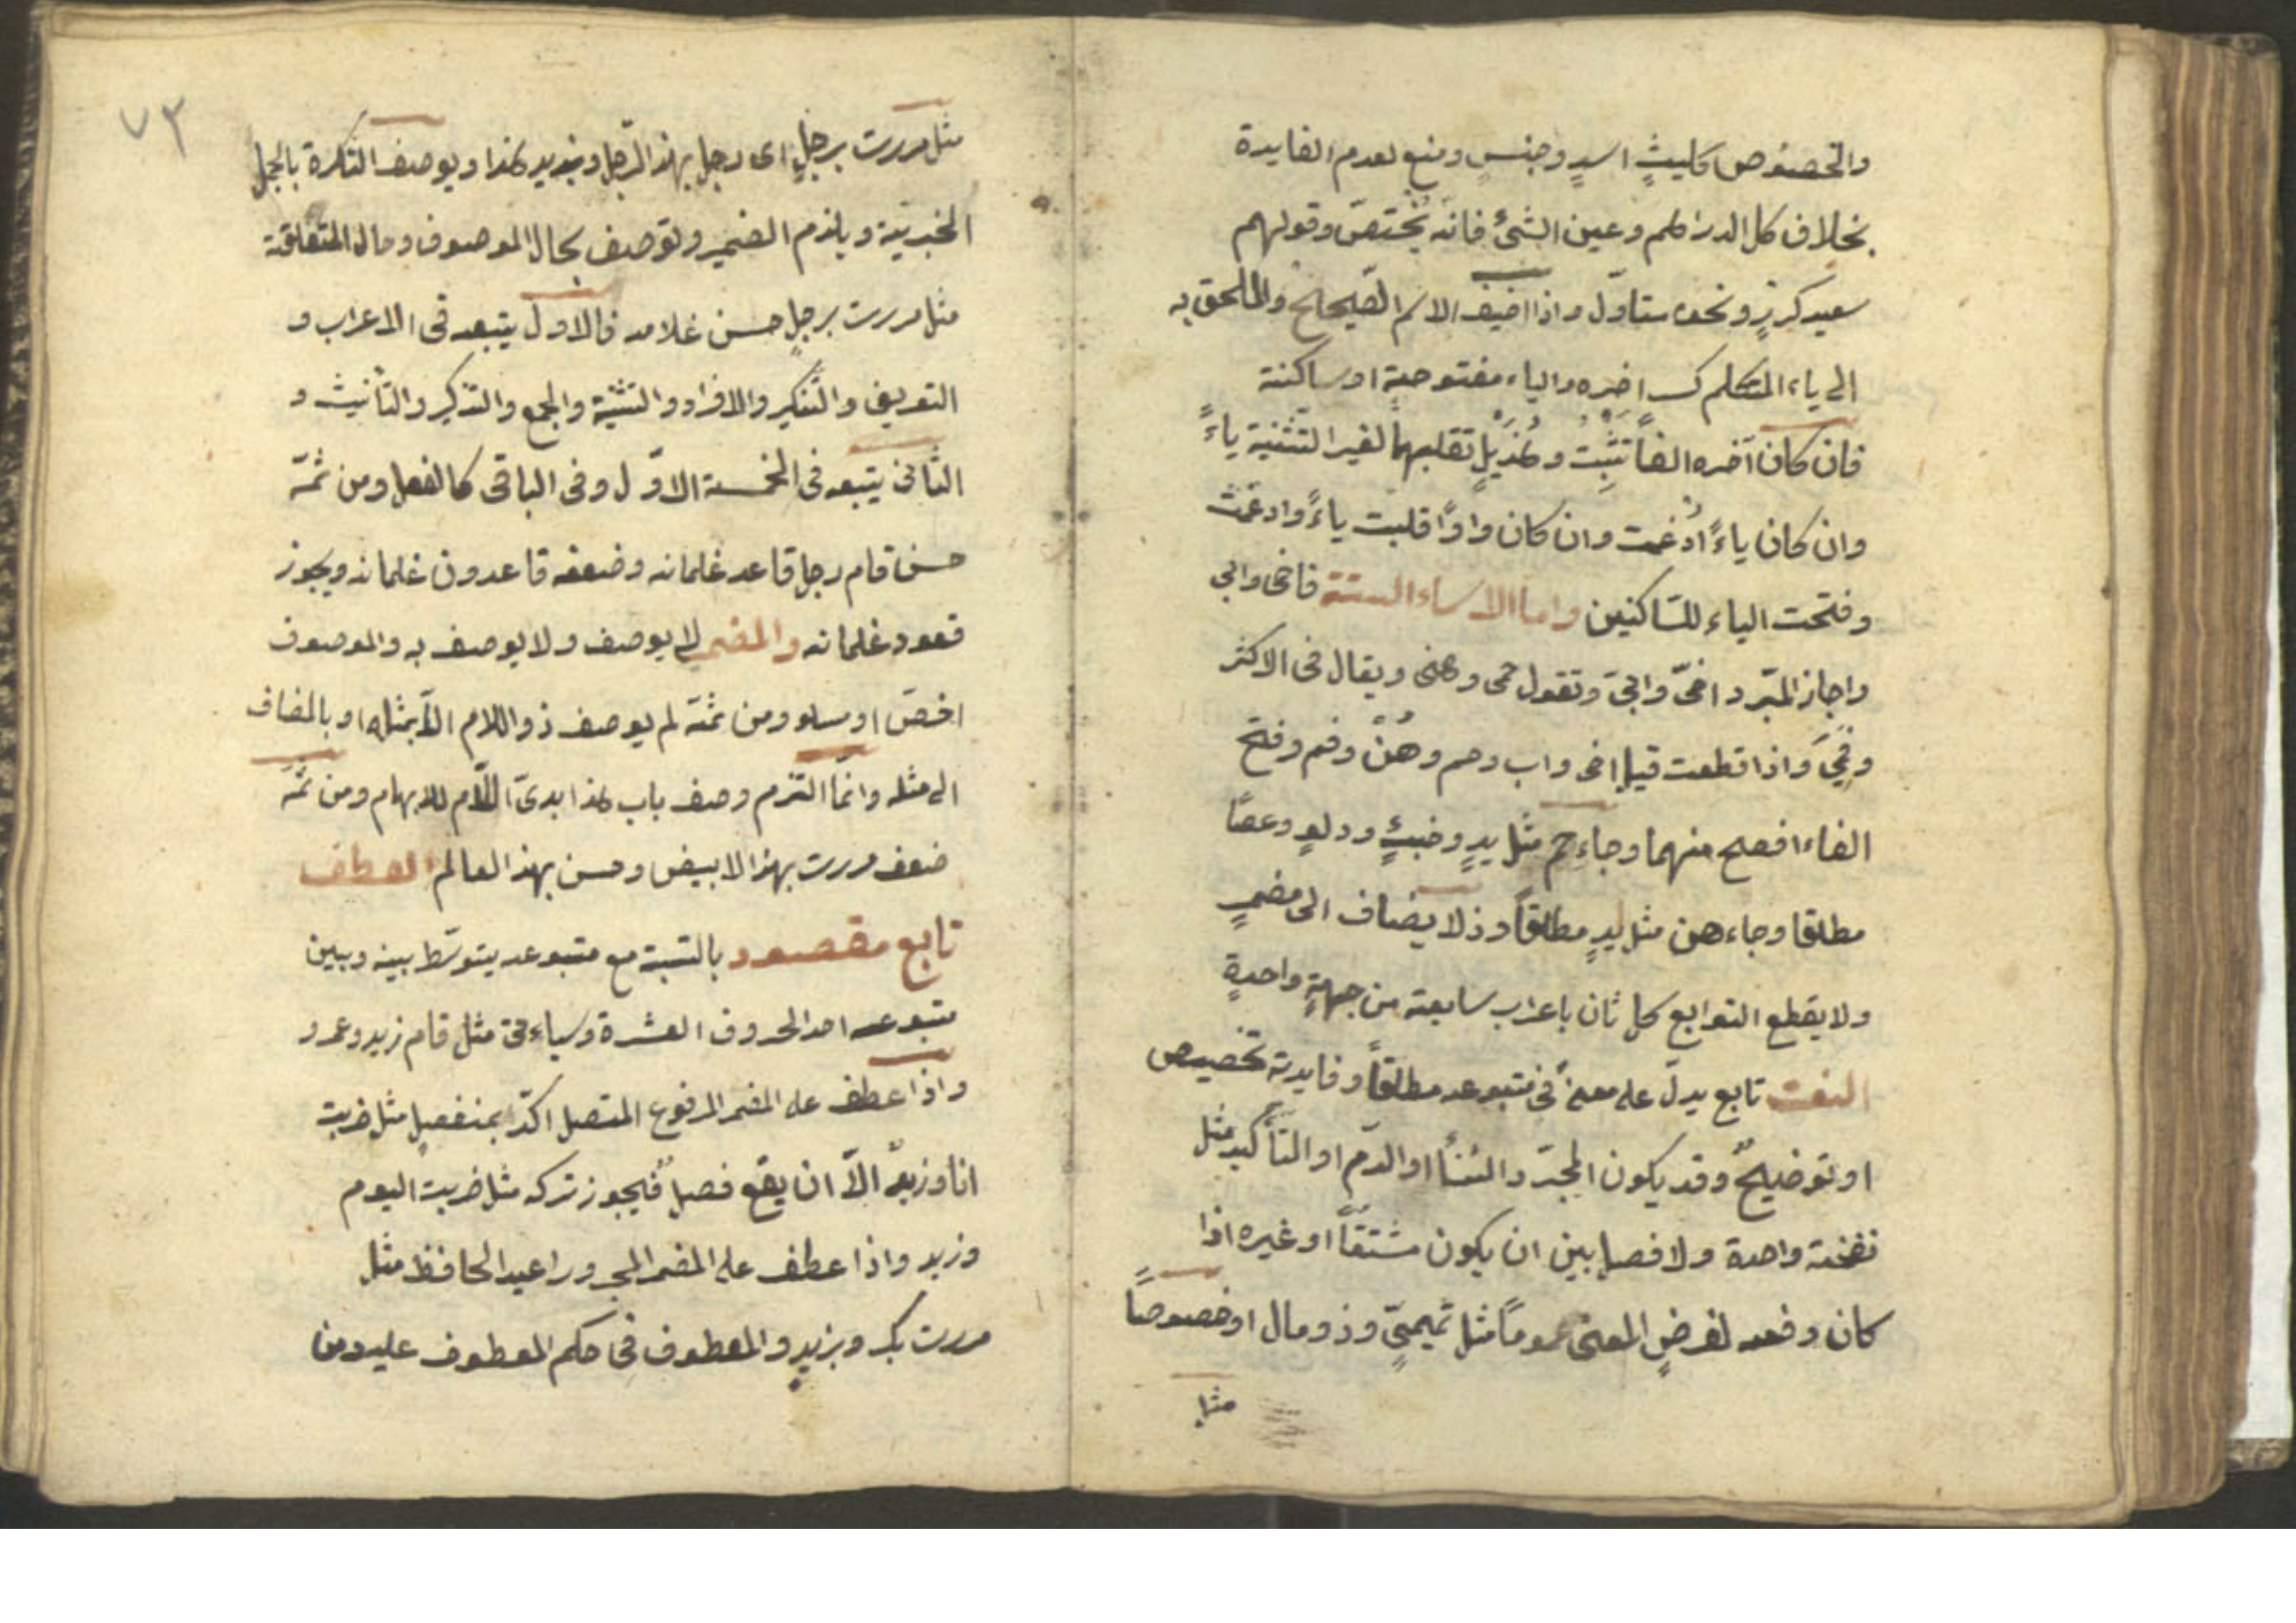 والخصوص كليثٍ اسدٍ وجنسٍ ومنع لعدم الفايدة
بخلاف كل الدراهم وعين الشئ فانه يختصّ وقولهم
سعيد كرزٍ ونحوه متاوّل واذا اضيف الاسم الصّحيح والملحق به
الى ياء المتكلم كسر اخره والياء مفتوحة او ساكنة
فان كان آخره الفاً تثبت وهُذَيْلٍ تقلبها لغير التّثنية ياءً
وان كان ياءً اُدغمت وان كان واوًا قلبت ياءً وادغمت
وفتحت الياء للسّاكنين واما الاسماء الستة فاخى وابى
واجاز المبّرد اخىّ وابىّ وتقول حمى وهنى ويقال فى الاكثر
وفِىَّ واذا قطعت قيل اخ واب وحم وهُنْ وفم وفتح
الفاء افصح منهما وجاء حم مثل يدٍ وخبئٍ ودلوٍ وعصًا
مطلقا وجاء هن مثل يدٍ مطلقاً وذو لا يضاف الى مضمرٍ
ولا يقطع التوابع كل ثان باعراب سابقه من جهةٍ واحدةٍ
النعت تابع يدلّ على معنىً فى متبوعه مطلقاً وفايدته تخصيص
او توضيحٌ وقد يكون لمجرّد الثنأ او الذّم او التأكيد مثل
نفخة واحدة ولا فصل بين ان يكون مشتقّاً او غيره اذا
كان وضعه لغرض المعنى عموماً مثل تميمىٍّ وذو مال او خصوصاً
مثل
٧٣
مثل مررت برجلٍ اى رجل بهذا الرّجل وبزيد هذا ويوصف النّكرة بالجمل
الخبريّة ويلزم الضمير وتوصف بحال الموصوف وحال المتعلّقة
مثل مررت برجلٍ حسن غلامه فالاول يتبعه فى الاعراب و
التعريف والتّنكير والافراد والتثنية والجمع والتذكير والتأنيث و
الثّانى يتبعه فى الخمسة الاوّل وفى الباقى كالفعل ومن ثمّة
حسن قام رجل قاعد غلمانه وضعف قاعدون غلمانه ويجوز
قعود غلمانه والمضمر لا يوصف ولا يوصف به والموصوف
اخصّ او مساو ومن ثمّة لم يوصف ذو اللام الاّ بمثله او بالمضاف
الى مثله وانّما التزم وصف باب هذا بذى اللّام للابهام ومن ثمّه
ضعف مررت بهذا الابيض وحسن بهذا العالم العطف
تابع مقصود بالنّسبة مع متبوعه يتوسّط بينه وبين
متبوعه احد الحروف العشرة وسياءتى مثل قام زيد وعمرو
واذا عطف على المضمر المرفوع المتصل اكّد بمنفصل مثل ضربت
انا وزيدٌ الاّ ان يقع فصل فيجوز تركه مثل ضربت اليوم
وزيد واذا عطف على المضمر المجرور اعيد الخافظ مثل
مررت بك وبزيدٍ والمعطوف فى حكم المعطوف عليه ومن